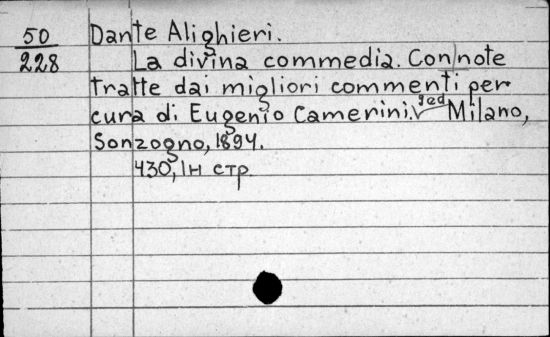 50
228
Dante Alighieri.
La divina commedia. Con note
tratte dai migliori commenti per
cura di Eugenio Camerini. ed Milano,
Sonzogno, 1894.
430, 1н стр.